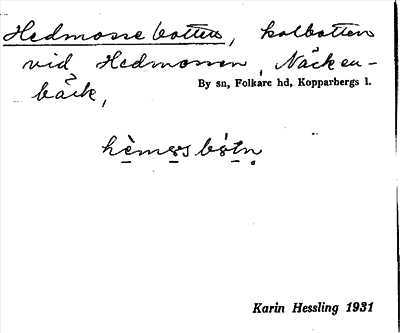 Hedmossebotten, kolbotten
vid Hedmossen, Näcken-
bäck,
By sn, Folkare hd, Kopparbergs l.
hèmǫsbǫ̀tn̥
Karin Hessling 1931